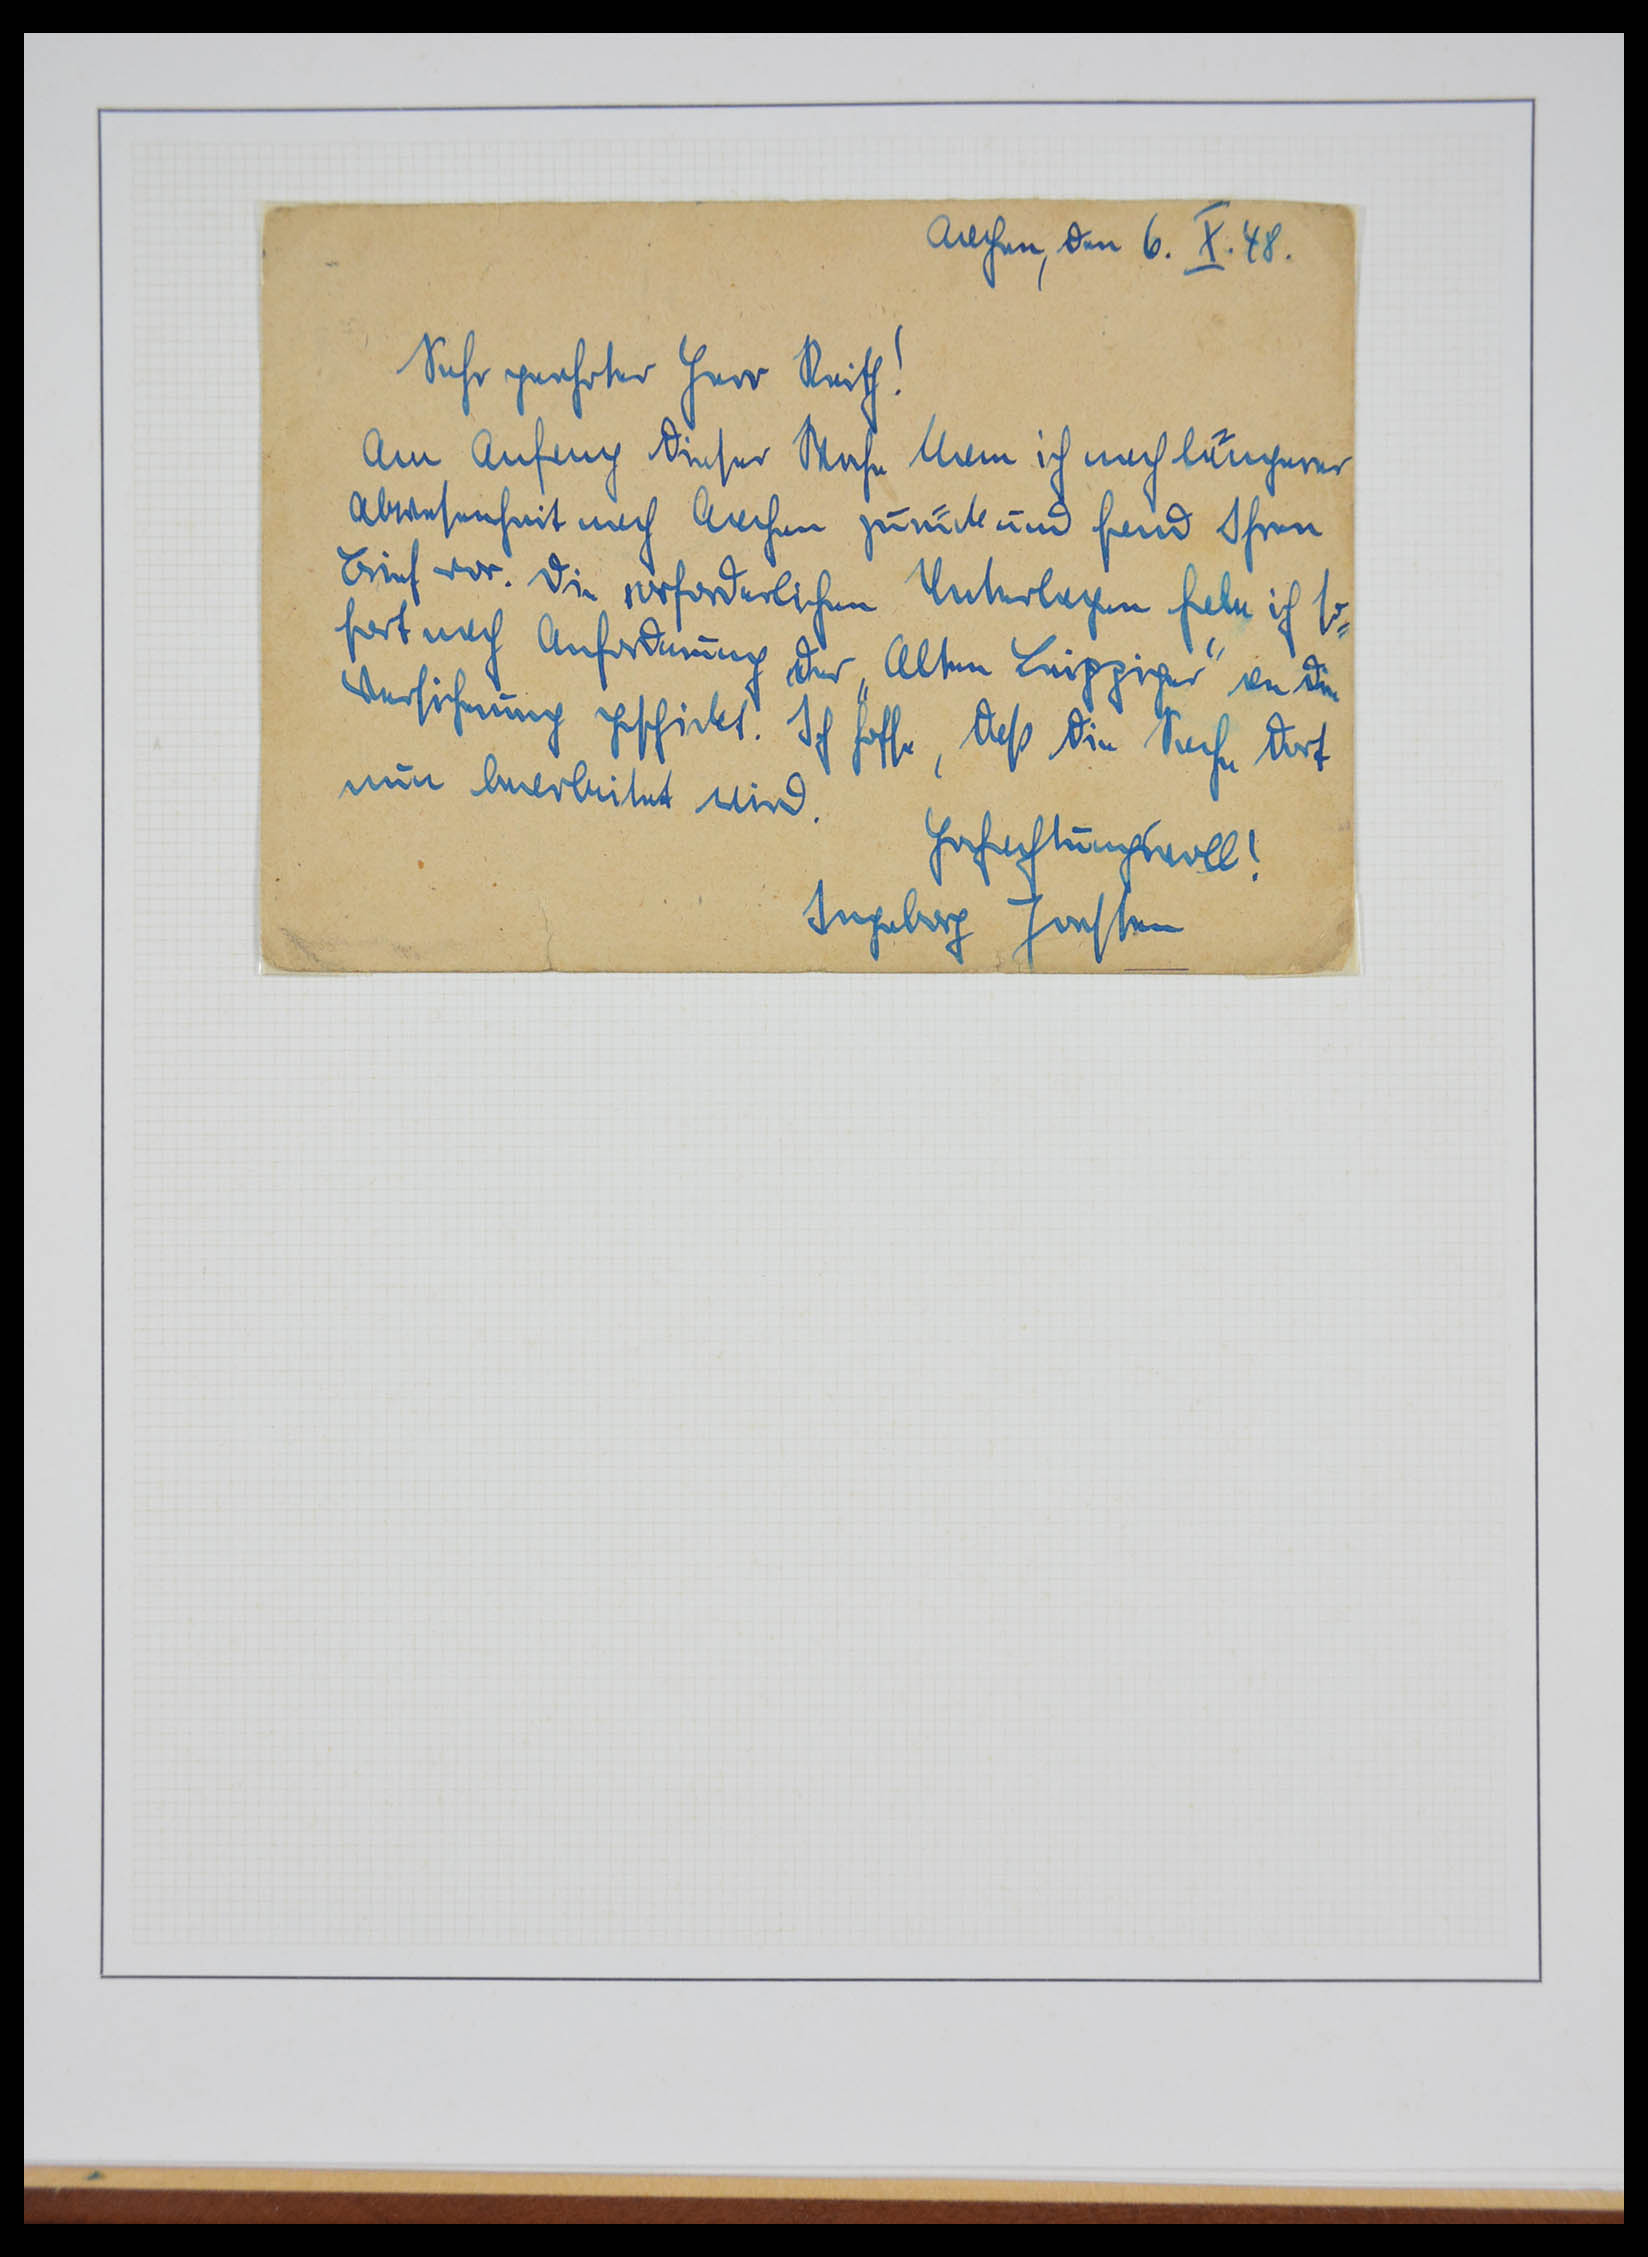 Aachen, den 6. X. 48.
Sehr geehrter Herr Reith!
Am Anfang dieser Woche kam ich nach längerer
Abwesenheit nach Aachen zurück und fand Ihren
Brief vor. Die erforderlichen Unterlagen habe ich so=
fort nach Anforderung der „Alten Leipziger“ an die
Versicherung geschickt. Ich hoffe, daß die Sache dort
nun bearbeitet wird.
Hochachtungsvoll!
Ingeborg